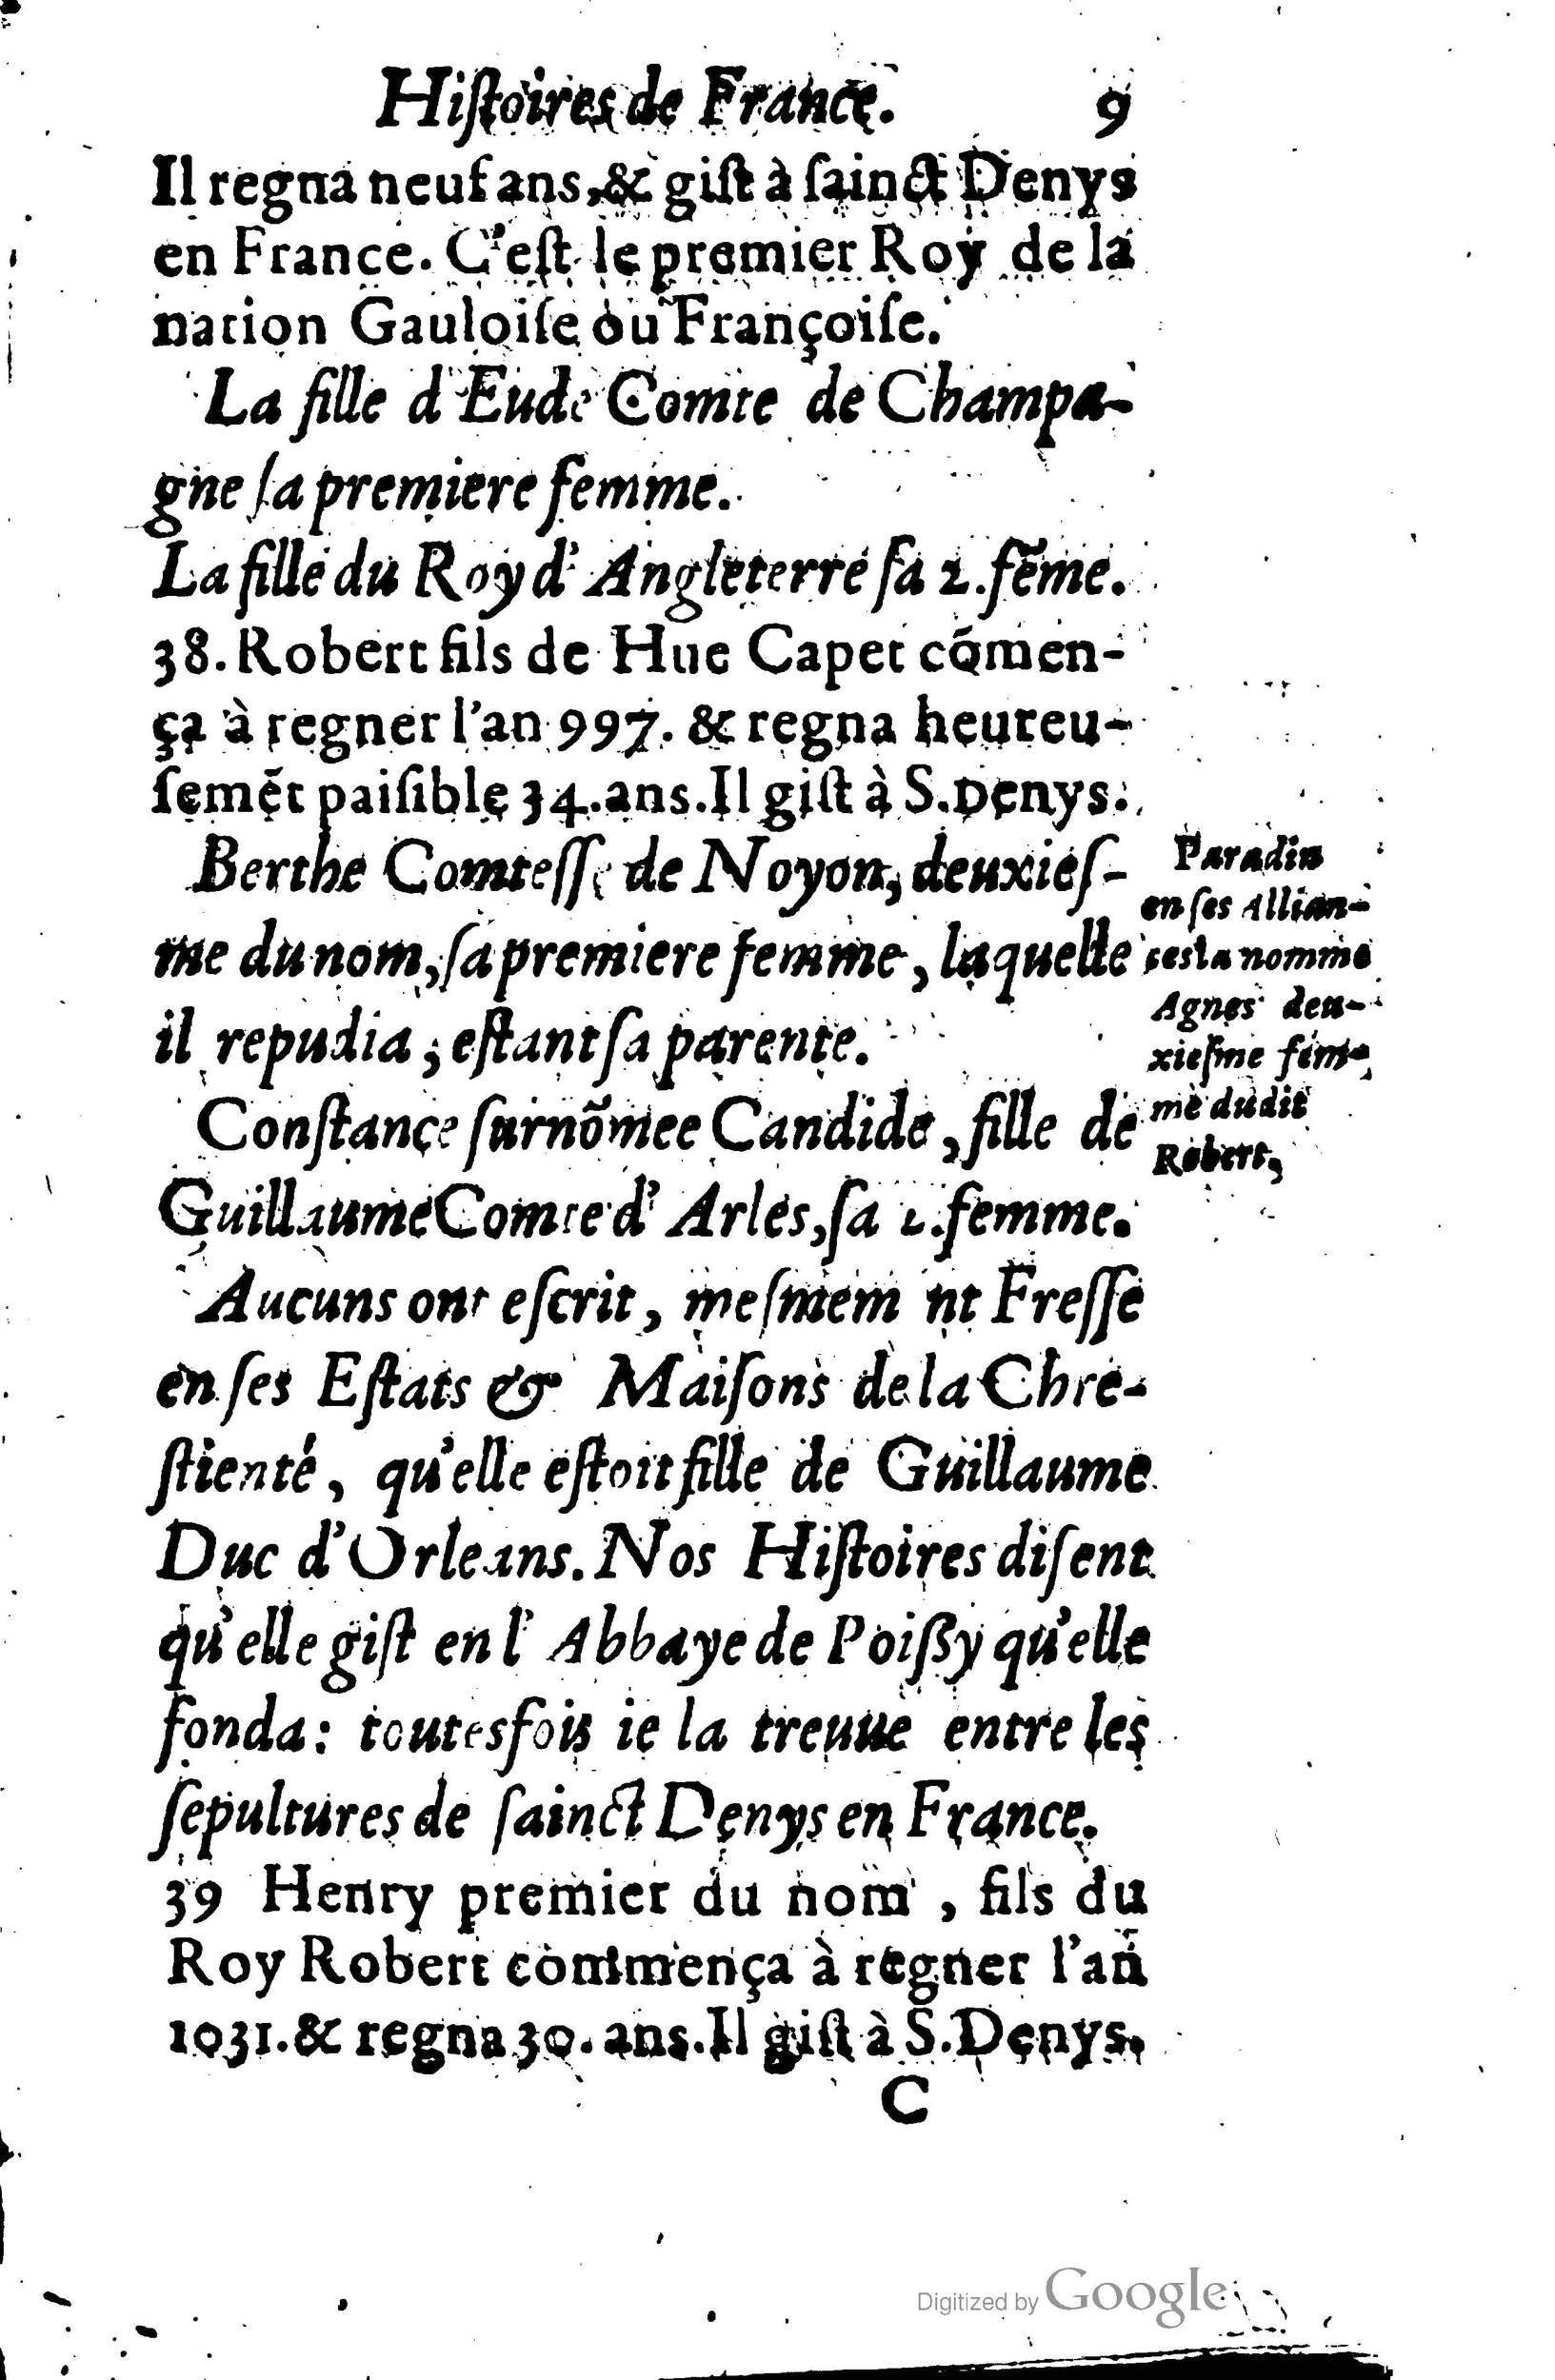 Hiſtoires de France. 9
Il regna neuf ans, & giſt à ſainct Denys
en France. C'eſt le premier Roy de la
nation Gauloiſe ou Françoiſe.
La fille d'Eude Comte de Champa-
gne ſa premiere femme.
La fille du Roy d'Angleterre ſa 2. fẽme.
38. Robert fils de Hue Capet cõmen-
ça à regner l'an 997. & regna heureu-
ſemẽt paiſible 34. ans. Il giſt à S. Denys.
Berthe Comteſſe de Noyon, deuxieſ-
me du nom, ſa premiere femme, laquelle
il repudia, eſtant ſa parente.
Conſtance ſurnõmee Candide, fille de
Guillaume Comte d'Arles, ſa 2. femme.
Aucuns ont eſcrit, meſmem nt Freſſe
en ſes Eſtats & Maiſons de la Chre-
ſtienté, qu'elle eſtoit fille de Guillaume
Duc d'Orleans. Nos Hiſtoires diſent
qu'elle giſt en l'Abbaye de Poiſſy qu'elle
fonda: toutesfois ie la treuue entre les
ſepultures de ſainct Denys en France.
39 Henry premier du nom, fils du
Roy Robert commença à regner l'an
1031. & regna 30. ans. Il giſt à S. Denys.
C
Paradin
en ſes Allian-
ces la nomme
Agnes deu-
xieſme fem-
me dudit
Robert,
Digitized by Google